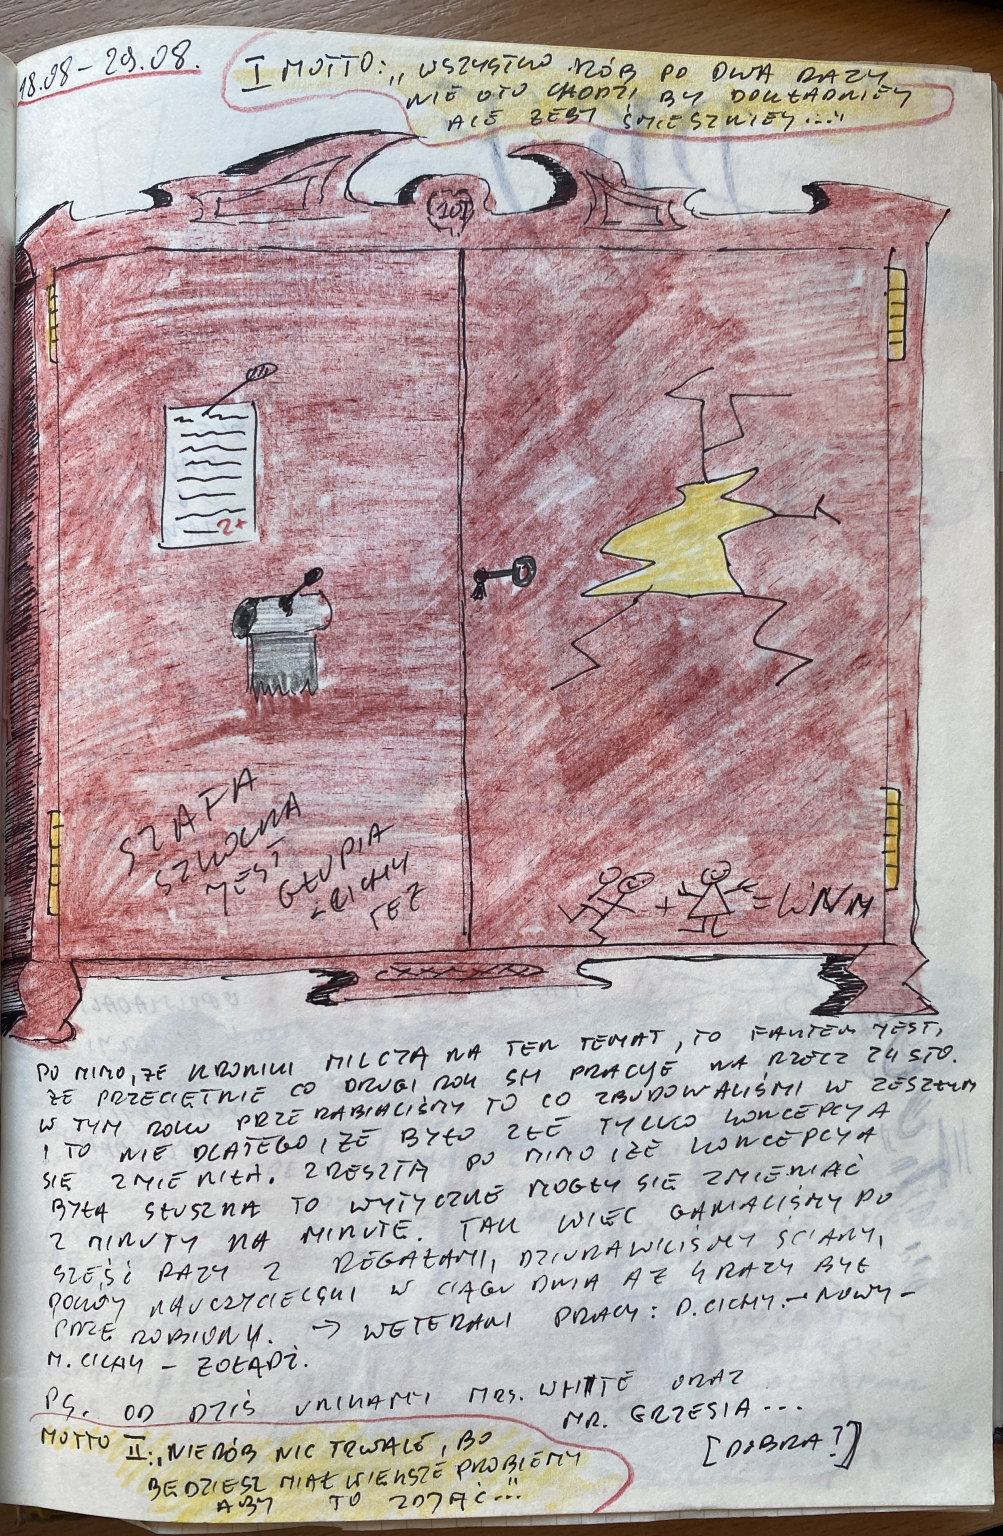 18.08 - 29.08.
I MOTTO: „WSZYSTKO RÓB PO DWA RAZY
NIE OTO CHODZI BY DOKŁADNIEY
ALE ŻEBY ŚMIESZNIEY...."
2+
SZAFA
SZKOLNA
JEST
GŁUPIA
CICHY
TEŻ
+ = WNM
PO MIMO, ŻE KRONIKI MILCZĄ NA TEN TEMAT, TO FAKTEM JEST,
ŻE PRZECIĘTNIE CO DRUGI ROK SH PRACUJE NA RZECZ ZHSTO.
W TYM ROKU PRZERABIALIŚMY TO CO ZBUDOWALIŚMI W ZESZŁYM
I TO NIE DLATEGO, ŻE BYŁO ZŁE TYLKO KONCEPCYA
SIĘ ZMIENIŁA. ZRESZTĄ PO MIMO, ŻE KONCEPCYA
BYŁA SŁUSZNA TO WYTYCZNE MOGŁY SIĘ ZMIENIAĆ
Z MINUTY NA MINUTĘ. TAK WIĘC GANIALIŚMY PO
SZEŚĆ RAZY Z REGAŁAMI, DZIURAWILIŚMY ŚCIANY,
POKÓY NAUCZYCIELSKI W CIĄGU DNIA AŻ 4 RAZY BYŁ
PRZEROBIONY. → WETERANI PRACY: D. CICHY - NOWY -
M. CICHY - ŻOŁĄDŹ.
PS. OD DZIŚ UNIKAMY MRS. WHITE ORAZ
MR. GRZESIA...
[DOBRA?]
MOTTO II: „NIERÓB NIC TRWALE, BO
BĘDZIESZ MIAŁ WIĘKSZE PROBLEMY
ABY TO ZDJĄĆ..."